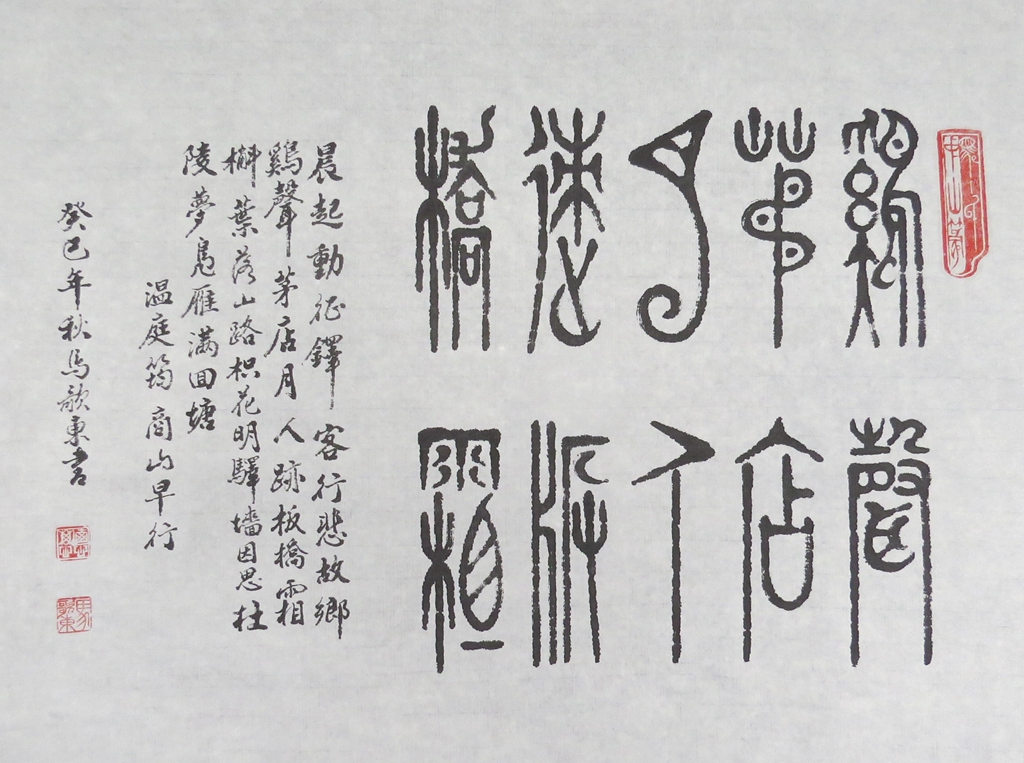 鷄聲
茅店
月人
迹板
橋霜
晨起動征鐸客行悲故鄉
鷄聲茅店月人跡板橋霜
槲葉落山路枳花明驛墻因思杜
陵夢鳧雁滿回塘
温庭筠商山早行
癸巳年秋馬歌東書